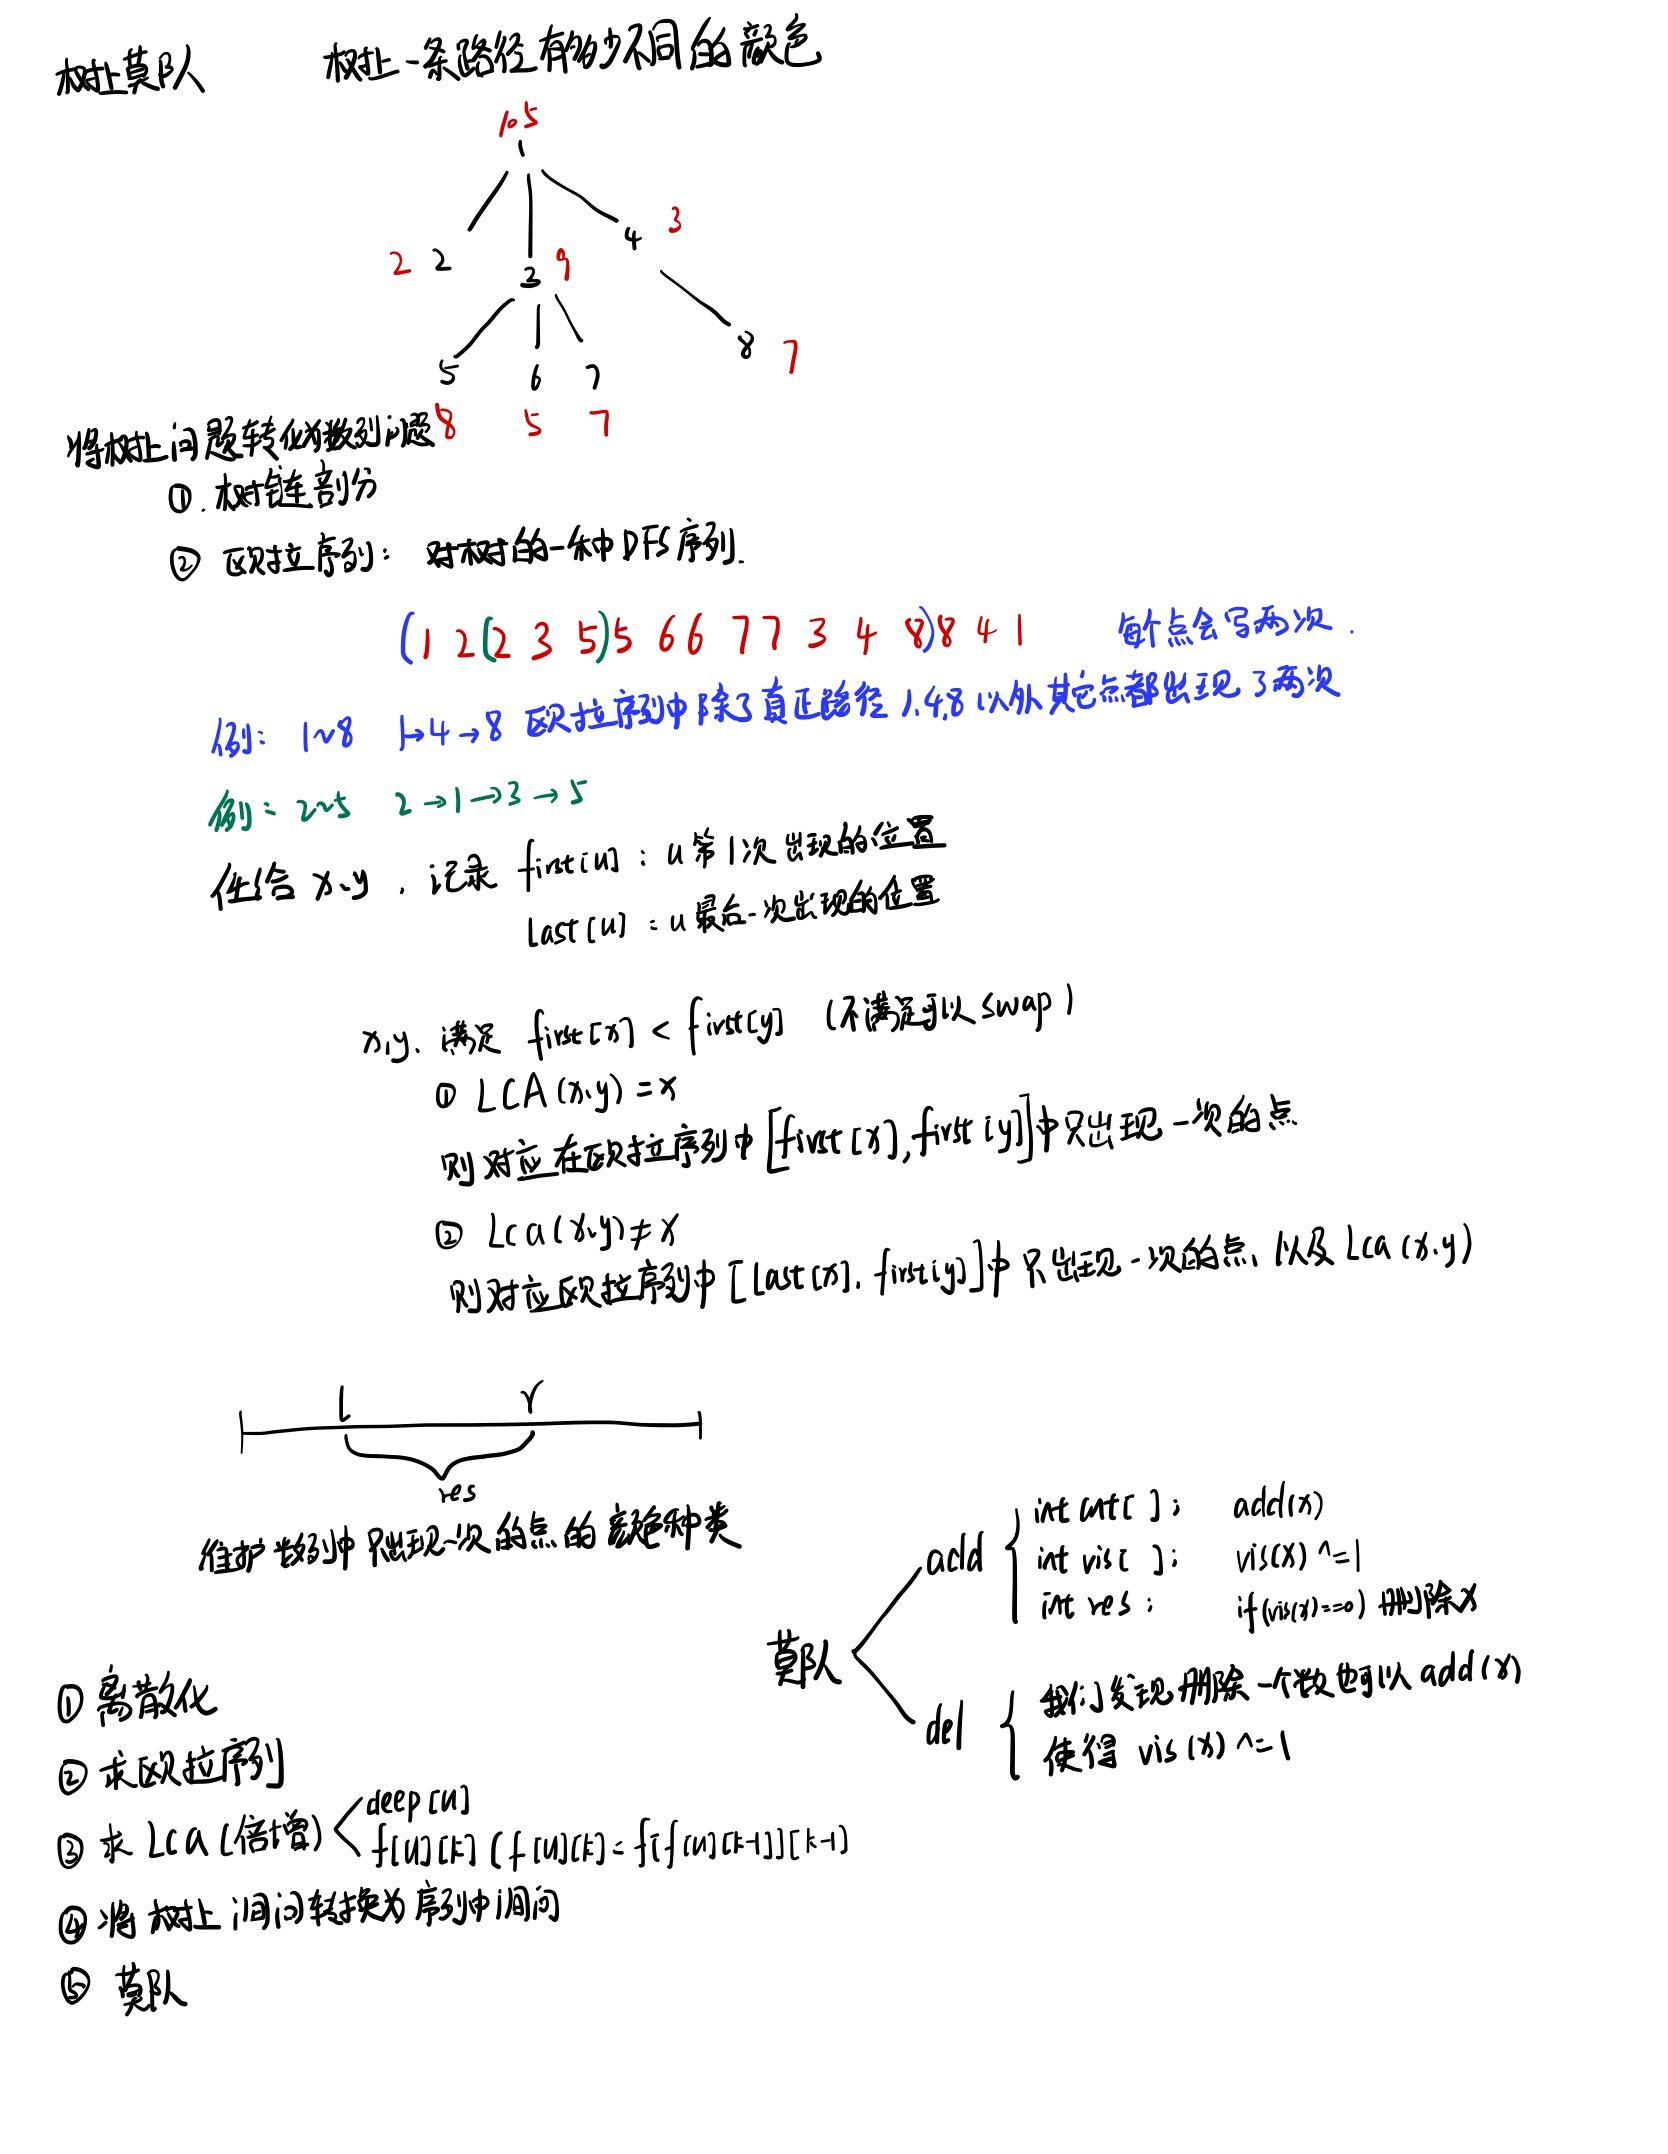 树上莫队 树上一条路径有多少不同的颜色
105
1
2 2 3 9 4 3
5 6 7 8 7
8 5 7
将树上问题转化为数列问题
①. 树链剖分
② 欧拉序列: 对树的一种DFS序列.
(1 2 (2 3 5) 5 6 6 7 7 3 4 8) 8 4 1 每个点会写两次.
例: 1~8 1→4→8 欧拉序列中除了真正路径 1.4.8 以外其它点都出现了两次
例: 2~5 2→1→3→5
任给 x.y , 记录 first[u] : u第1次出现的位置
last[u] : u最后一次出现的位置
x,y. 满足 first[x] < first[y] (不满足可以swap)
① LCA(x.y) = x
则对应在欧拉序列中 [first[x],first[y]]中只出现一次的点
② Lca(x.y) ≠ x
则对应欧拉序列中 [last[x]. first[y]]中只出现一次的点、以及Lca(x.y)
l r
res
维护数列中只出现一次的点的颜色种类
莫队
add
int cnt[ ]; add(x)
int vis[ ]; vis(x) ^=1
int res; if(vis(x)==0) 删除x
del
我们发现删除一个数也可以add(x)
使得 vis(x) ^=1
① 离散化
② 求欧拉序列
③ 求 Lca (倍增) deep[u]
f[u][k] (f[u][k] = f[f[u][k-1]][k-1]
④ 将树上询问转换为序列中询问
⑤ 莫队